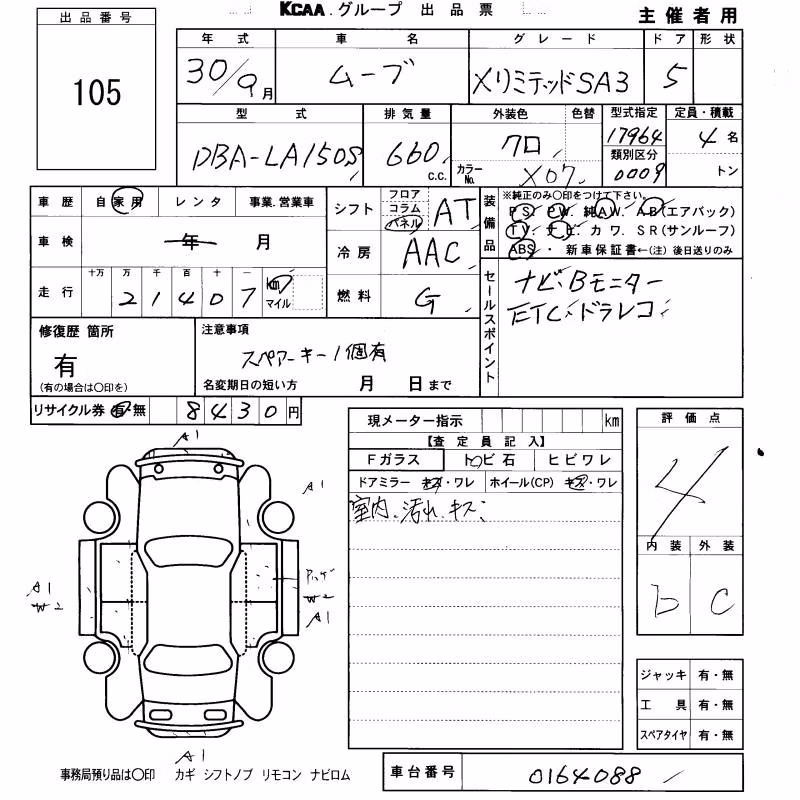 KCAA.グループ 出品票
主催者用
出品番号
105
年式 車名 グレード ドア 形状
30/9月 ムーブ XリミテッドSA3 5
型式 排気量 外装色 色替 型式指定 定員・積載
DBA-LA150S 660 c.c. クロ 17964 4名
カラーNo. X07 類別区分 0009 トン
車歴 自家用 レンタ 事業.営業車
シフト フロア コラム パネル AT
装備品 ※純正のみ○印をつけて下さい。
PS. PW. 純AW. AB(エアバック)
TV. ナビ. カワ. SR(サンルーフ)
ABS ・ 新車保証書←(注) 後日送りのみ
車検 年 月
冷房 AAC
走行 十万 万 千 百 十 一 km マイル
21407
燃料 G
セールスポイント
ナビ、Bモニター
ETC、ドラレコ
修復歴 箇所
有
(有の場合は○印を)
注意事項
スペアーキー1個有
名変期日の短い方 月 日まで
リサイクル券 有 無 8430円
現メーター指示 km
【査定員記入】
Fガラス トビ石 ヒビワレ
ドアミラー キズ・ワレ ホイール(CP) キズ・ワレ
室内、汚れ、キズ
評価点
4
内装 外装
b C
A1
A1
A1
W2
A1
A1
ジャッキ 有・無
工具 有・無
スペアタイヤ 有・無
事務局預り品は○印 カギ シフトノブ リモコン ナビロム
車台番号 0164088